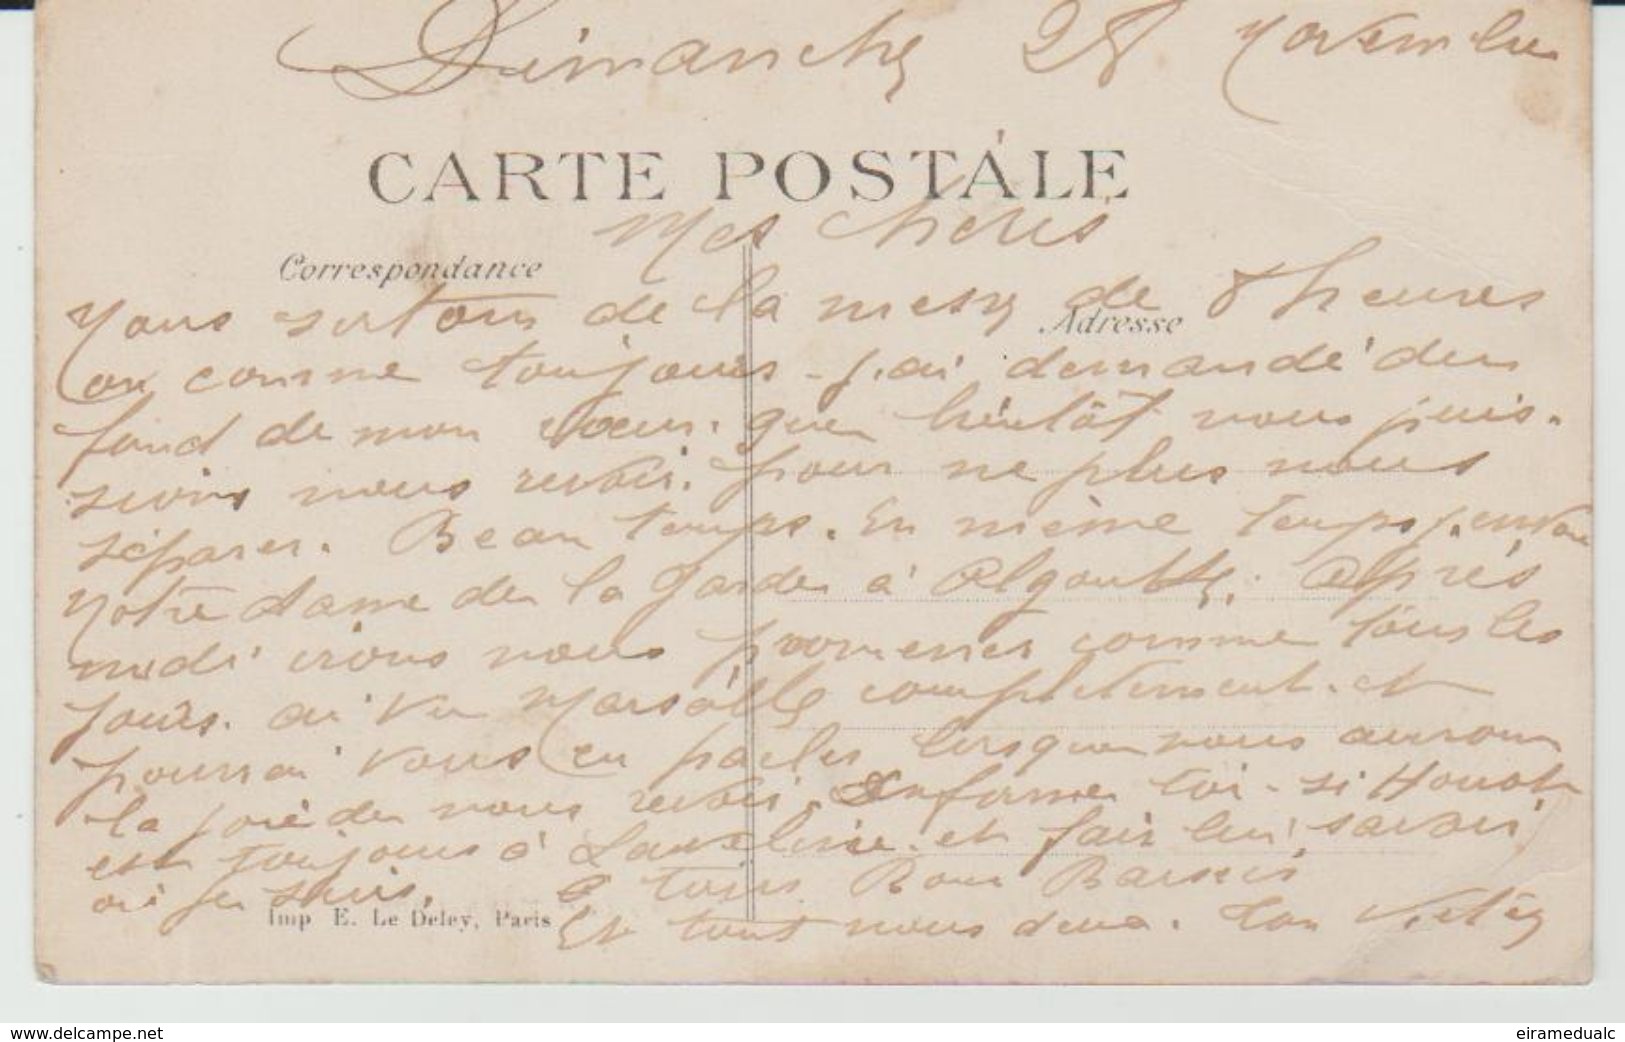 Dimanche 28 Novembre
CARTE POSTALE
Mes cheris
Correspondance
Nous sortons de la messe de 8 heures
Adresse
ou comme toujours j'ai demandé du
fond de mon coeur. que bientôt nous puis-
sions nous revoir. pour ne plus nous
séparer. Beau temps. En même temps j'envoie
Notre Dame de la Garde à Algoutte. Après
midi irons nous promener comme tous les
jours. ai vu Marseille complètement. et
pourrai vous en parler lorsque nous aurons
la joie de nous revoir. Informe toi si
est toujours à Laveline. et fais lui savoir
où je suis. à tous Bons Baisers
Imp E. Le Deley, Paris
Et tout nous deux. Ton
www.delcampe.net
eiramedualc